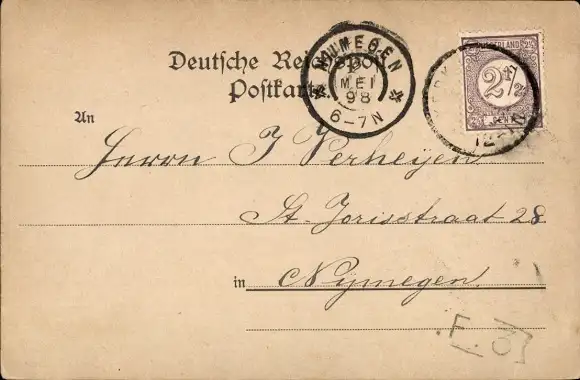 Deutsche Reichspost
Postkarte
NIJMEGEN
MEI
98
6-7N
NEDERLAND
2½
An
Herrn J Verheijen
St. Jorisstraat 28
in Nijmegen.